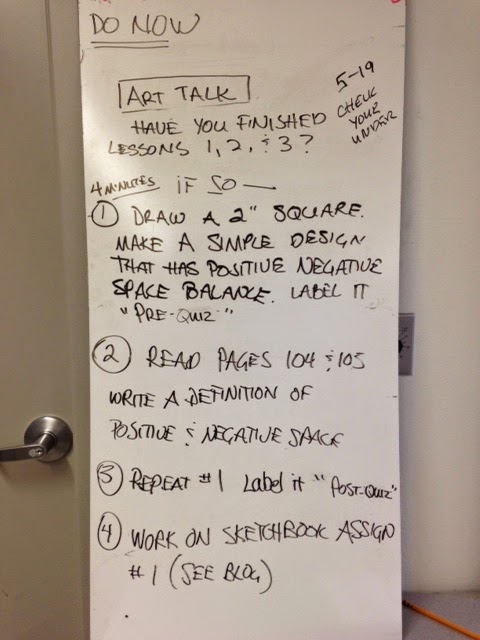 DO NOW
ART TALK
5-19
CHECK
YOUR
UNDER
HAVE YOU FINISHED
LESSONS 1, 2, & 3?
4 MINUTES IF SO —
① DRAW A 2" SQUARE.
MAKE A SIMPLE DESIGN
THAT HAS POSITIVE NEGATIVE
SPACE BALANCE. LABEL IT
"PRE-QUIZ"
② READ PAGES 104 & 105
WRITE A DEFINITION OF
POSITIVE & NEGATIVE SPACE
③ REPEAT #1 Label it "POST-QUIZ"
④ WORK ON SKETCHBOOK ASSIGN
#1 (SEE BLOG)